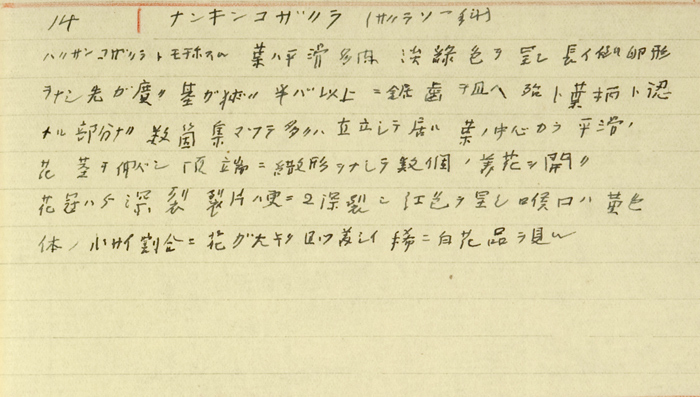 14 ナンキンコザクラ (サクラソー科)
ハクサンコザクラトモ称スル 葉ハ平滑多肉 淡綠色ヲ呈シ長イ倒卵形
ヲナシ先ガ廣ク基ガ狹ク 半バ以上ニ鋸歯ヲ具ヘ 殆ト葉柄ト認
ムル部分ナク 数箇集マツテ多クハ直立シテ居ル 葉ノ中心カラ平滑ノ
花茎ヲ伸ベシ頂端ニ繖形ヲナシテ数個ノ美花ヲ開ク
花冠ハ5深裂 裂片ハ更ニ2深裂シ 紅色ヲ呈シ喉口ハ黄色
体ノ小サイ割合ニ花ガ大キク且ツ美シイ 稀ニ白花品ヲ見ル